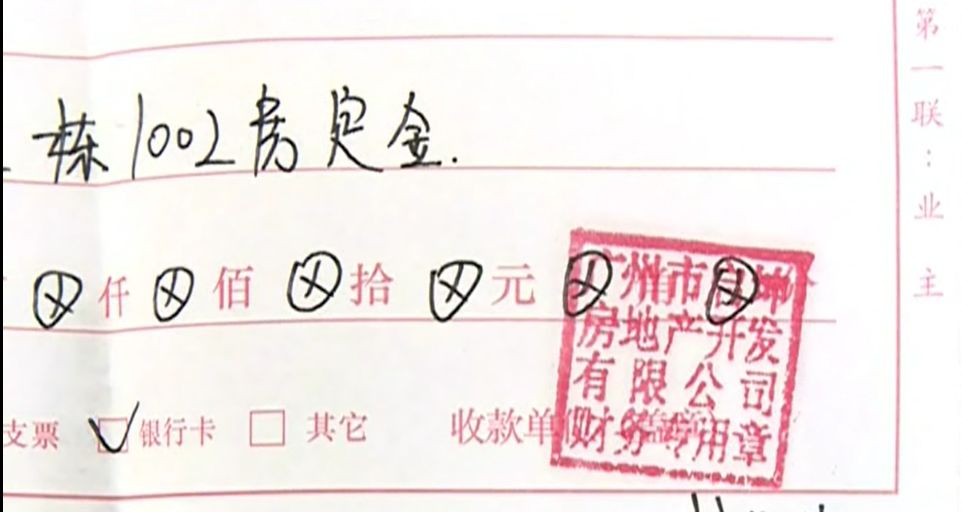 栋1002房定金.
ⓧ仟ⓧ佰ⓧ拾ⓧ元ⓧ角ⓧ
支票 ☑银行卡 □其它 收款单
广州市坤
房地产开发
有限公司
财务专用章
第一联：业主